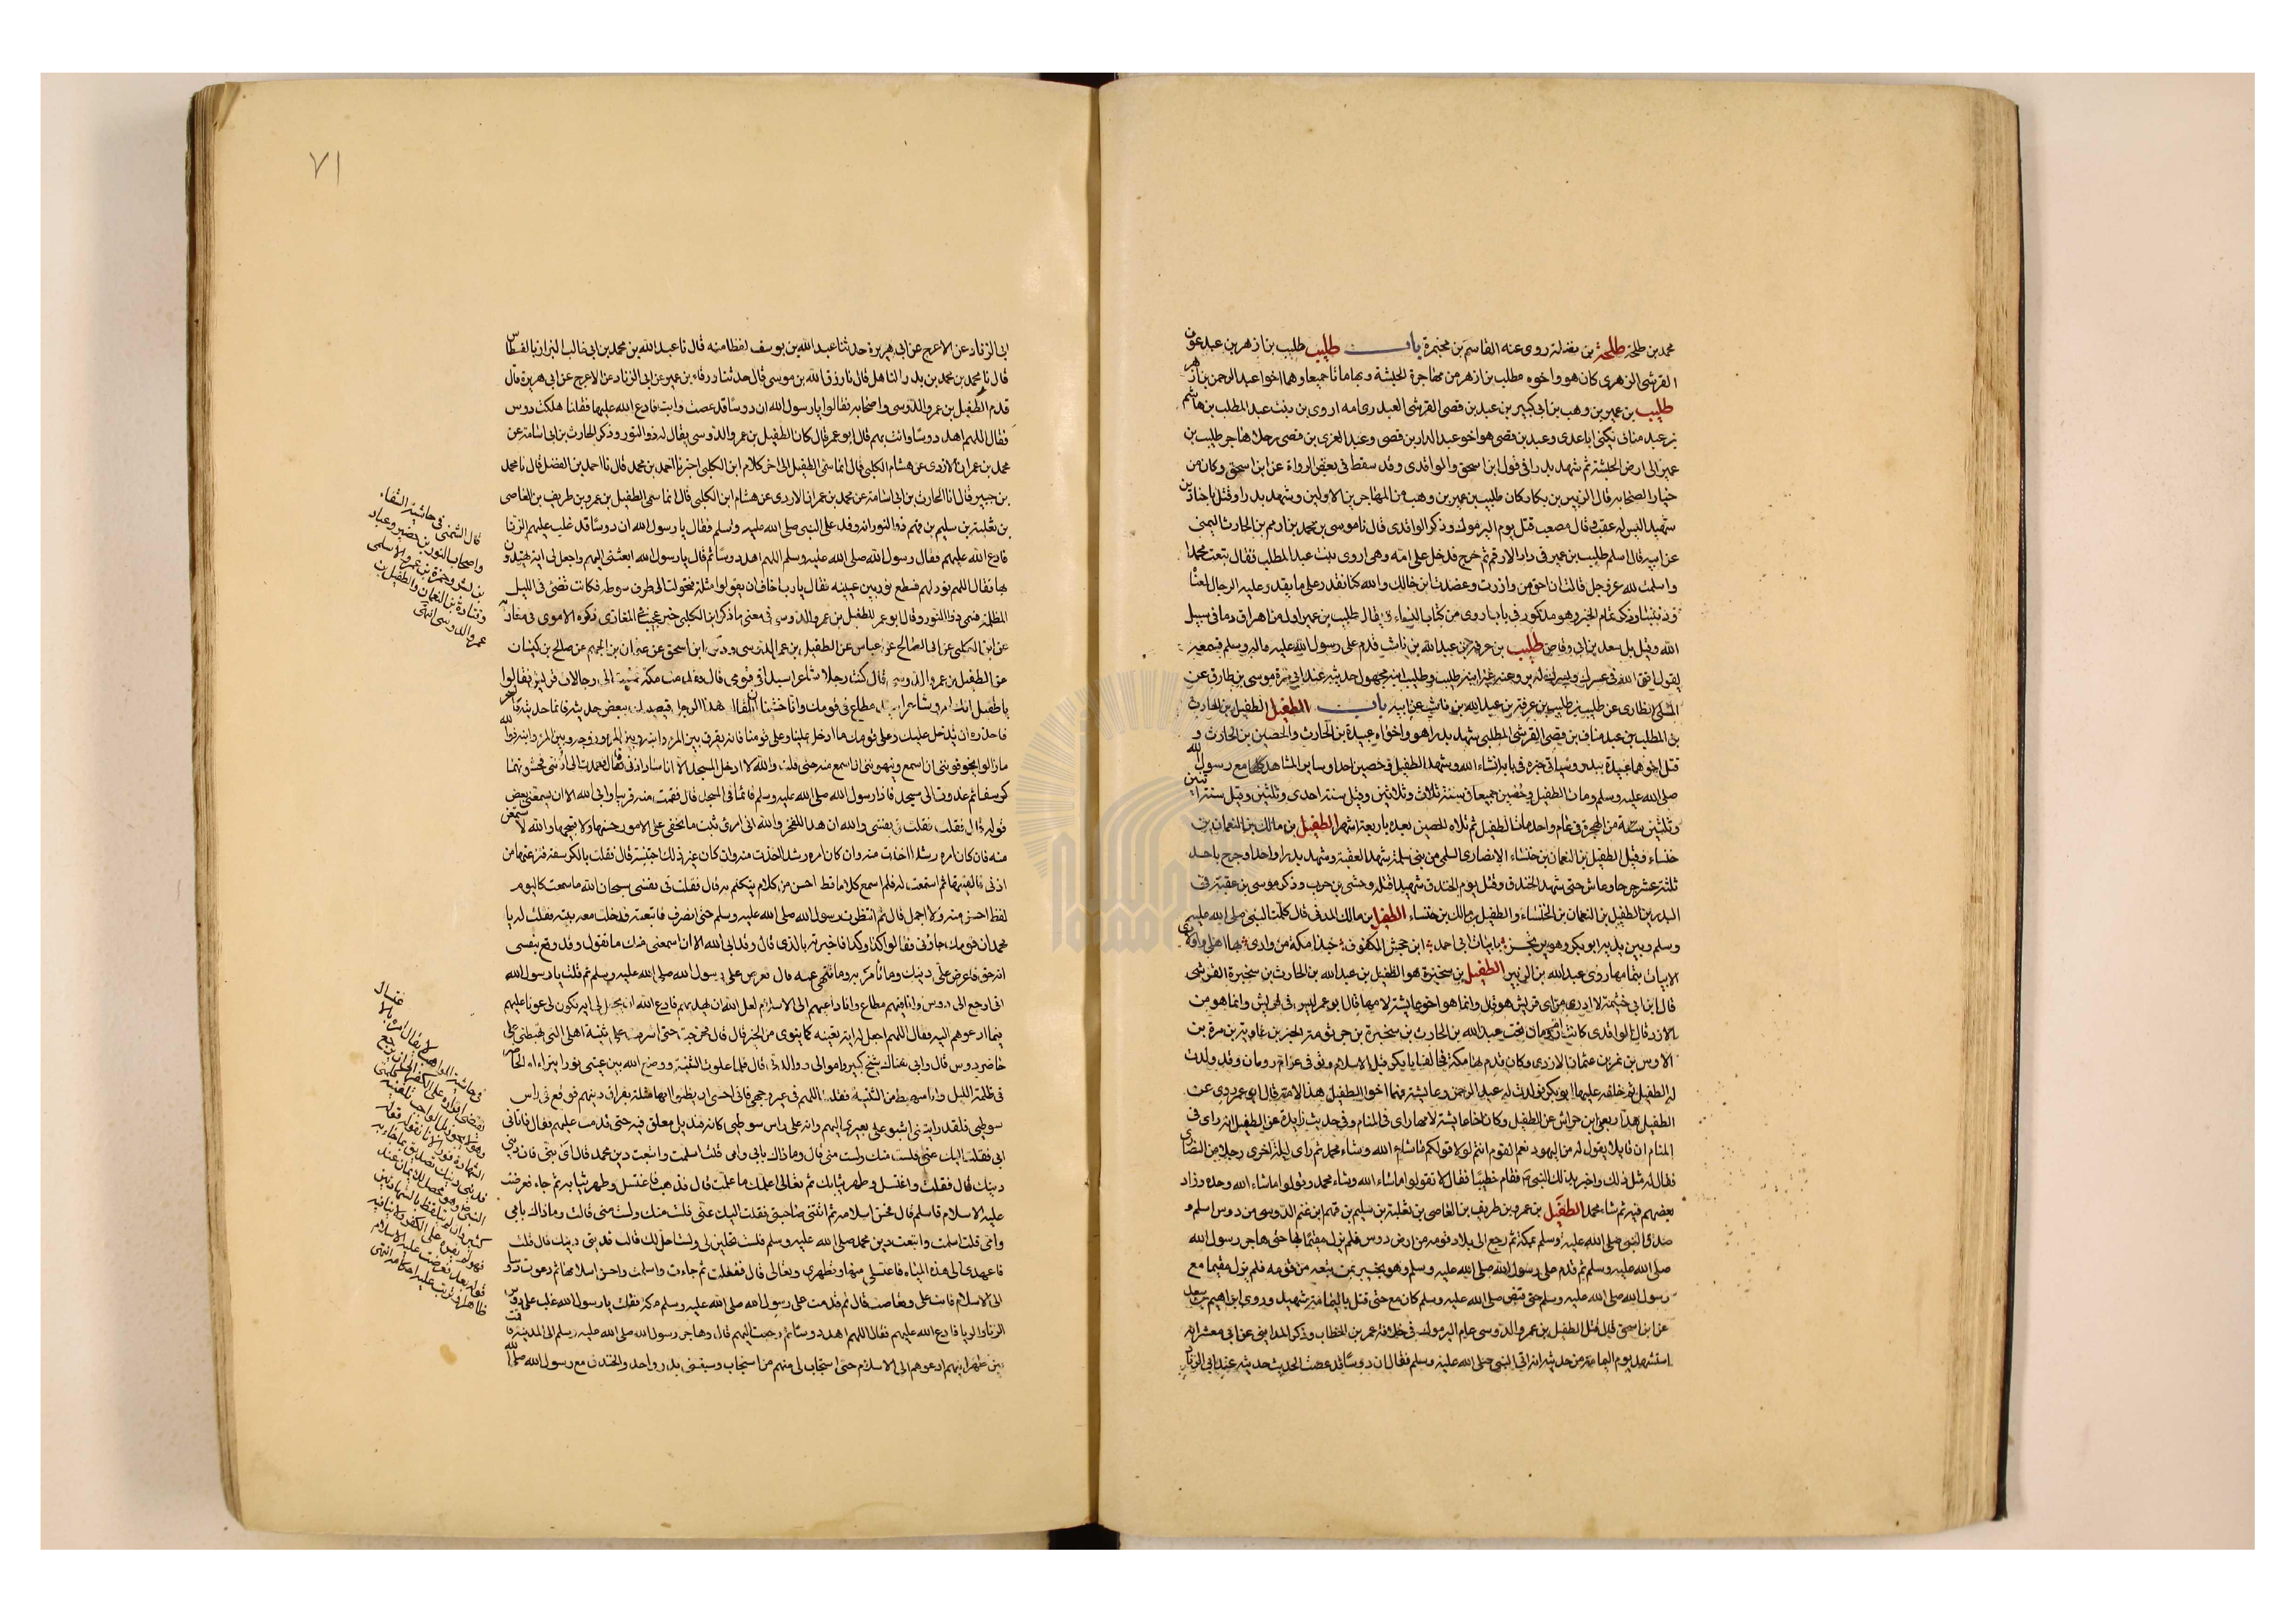 محمد بن طلحة طلحة بن نضلة روى عنه القاسم بن مخيمرة باب طليب طليب بن ازهر بن عبد عوف
القرشى الزهرى كان هو واخوه مطلب بن ازهر من مهاجرة الحبشة وبها ماتا جميعا وهما اخوا عبد الرحمن بن ازهر
طليب بن عمير بن وهب بن ابى كبير بن عبد بن قصى القرشى العبدرى امه اروى بن بنت عبد المطلب بن هاشم
بن عبد مناف يكنى ابا عدى وعبد بن قصى هو اخو عبد الدار بن قصى وعبد العزى بن قصى رجل هاجر طليب بن
عمير الى ارض الحبشة ثم شهد بدرا فى قول ابن اسحق والواقدى وقد سقط فى بعض الرواة عن ابن اسحق وكان من
خيار الصحابة قال الزبير بن بكار كان طليب بن عمير بن وهب من المهاجرين الاولين وشهد بدرا وقتل باجنادين
شهيدا ليس له عقب وقال مصعب قتل يوم اليرموك وذكر الواقدى قال نا موسى بن محمد بن ابراهيم بن الحارث التيمى
عن ابيه قال اسلم طليب بن عمير فى دار الارقم ثم خرج فدخل على امه وهى اروى بنت عبد المطلب فقال تبعت محمدا
واسلمت لله عز وجل فقالت ان احق من وازرت وعضدت ابن خالك والله لو كنا نقدر على ما يقدر عليه الرجال لمنعناه
وذببنا وذكر تمام الخبر وهو مذكور فى باب اروى من كتاب النساء قال طليب بن عمير اول من اهراق دما فى سبيل
الله وقيل بل سعد بن ابى وقاص طليب بن عرفة بن عبد الله بن ناشب قدم على رسول الله صلى الله عليه واله وسلم فسمعه
يقول اتق الله فى عسرك ويسرك لم يرو عنه غير ابنه كليب وكليب ابنه مجهول حديثه عند ابى قرة موسى بن طارق عن
المثنى الانطارى عن كليب بن طليب بن عرفة بن عبد الله بن ناشب عن ابيه باب الطفيل الطفيل بن الحارث
بن المطلب بن عبد مناف بن قصى القرشى المطلبى شهد بدرا هو واخواه عبيدة بن الحارث والحصين بن الحارث و
قتل اخوهما عبيدة ببدر وسياتى خبره فى بابه ان شاء الله وشهد الطفيل وحصين احدا وساير المشاهد كلها مع رسول الله
صلى الله عليه وسلم ومات الطفيل وحصين جميعا فى سنة ثلاث وثلاثين وقيل سنة احدى وثلثين وقيل سنة اثنتين
وثلثين سنة من الهجرة فى عام واحد مات الطفيل ثم تلاه الحصين بعده باربعة اشهر الطفيل بن مالك بن النعمان بن
خنساء وقيل الطفيل بن النعمان بن خنساء الانصارى السلمى من بنى سلمة شهد العقبة وشهد بدرا واحدا وجرح باحد
ثلثة عشر جرحا وعاش حتى شهد الخندق وقتل يوم الخندق شهيدا قتله وحشى بن حرب وذكر موسى بن عقبة فى
البدريين الطفيل بن النعمان بن الخنساء والطفيل بن مالك بن خنساء الطفيل بن مالك المدنى قال كان النبى صلى الله عليه
وسلم وبين يديه ابو بكر وهو يرتجز بابيات ابى احمد بن جحش المكفوف حبذا مكة من وادى بها اهلى وعوادى
الابيات بتمامها روى عبد الله بن الزبير الطفيل بن سخبرة هو الطفيل بن عبد الله بن الحارث بن سخبرة القرشى
قال ابن ابى خيثمة لا ادرى من اى قريش هو قال وانما هو اخو عايشة لامها قال ابو عمر ليس فى قريش وانما هو من
الازد قال الواقدى كانت ام رومان تحت عبد الله بن الحارث بن سخبرة بن جرثومة الخير بن عاوية بن مرة بن
الاوس بن نمر بن عثمان الازدى وكان قدم بها مكة فحالف ابا بكر قبل الاسلام وتوفى عن ام رومان وقد ولدت
له الطفيل ثم خلف عليها ابو بكر فولدت له عبد الرحمن وعايشة فهما اخوا الطفيل هذا لامه قال ابو عمر روى عن
الطفيل هذا ربعى بن حراش عن الطفيل وكان اخا عايشة لامها راى فى المنام وفى حديث زايدة عن الطفيل انه راى فى
المنام ان قايلا يقول له من اليهود نعم القوم انتم لولا قولكم ما شاء الله وشاء محمد ثم راى ليلة اخرى رجلا من النصارى
فقال له مثل ذلك واخبر بذلك النبى صلم فقام خطيبا فقال لا تقولوا ما شاء الله وشاء محمد وقولوا ما شاء الله وحده وزاد
بعضهم فيه ثم شاء محمد الطفيل بن عمرو بن طريف بن العاصى بن ثعلبة بن سليم بن فهم بن غنم الدوسى من دوس اسلم و
صدق النبى صلى الله عليه وسلم بمكة ثم رجع الى بلاد قومه من ارض دوس فلم يزل مقيما بها حتى هاجر رسول الله
صلى الله عليه وسلم ثم قدم على رسول الله صلى الله عليه وسلم وهو بخيبر بمن تبعه من قومه فلم يزل مقيما مع
رسول الله صلى الله عليه وسلم حتى قبض صلى الله عليه وسلم كان مع حتى قتل باليمامة شهيدا وروى ابراهيم بن سعد
عن ابن اسحق قال قتل الطفيل بن عمرو الدوسى عام اليرموك فى خلافة عمر بن الخطاب وذكر المداينى عن ابى معشر انه
استشهد يوم اليمامة من حديثه انه اتى النبى صلى الله عليه وسلم فقال ان دوسا قد عصت الحديث حديثه عند ابى الزناد
٧١
ابى الزناد عن الاعرج عن ابى هريرة حدثنا عبد الله بن يوسف لفظا منه قال نا عبد الله بن محمد بن ابى غالب البزاز بالفسطاس
قال نا محمد بن محمد بن بدر الباهلى قال نا رزق الله بن موسى قال حدثنا ورقاء بن عمير عن ابى الزناد عن الاعرج عن ابى هريرة قال
قدم الطفيل بن عمرو الدوسى واصحابه فقالوا يا رسول الله ان دوسا قد عصت وابت فادع الله عليها فقلنا هلكت دوس
فقال اللهم اهد دوسا وائت بهم قال ابو عمر قال كان الطفيل بن عمرو الدوسى يقال له ذو النور وذكر الحارث بن ابى اسامة عن
محمد بن عمران الازدى عن هشام الكلبى قال انما سمى الطفيل الى اخر كلام ابن الكلبى اخبرنا احمد بن محمد قال نا احمد بن الفضل قال نا محمد
بن جرير قال انا الحارث بن ابى اسامة عن محمد بن عمران الازدى عن هشام ابن الكلبى قال انما سمى الطفيل بن عمرو بن طريف بن العاصى
بن ثعلبة بن سليم بن فهم ذو النور انه وفد على النبى صلى الله عليه وسلم فقال يا رسول الله ان دوسا قد غلب عليهم الزنا
فادع الله عليهم فقال رسول الله صلى الله عليه وسلم اللهم اهد دوسا ثم قال يا رسول الله ابعثنى اليهم واجعل لى اية يهتدون
بها فقال اللهم نور له فسطع نور بين عينيه فقال يا رب اخاف ان يقولوا مثلة فتحولت الى طرف سوطه فكانت تضئ فى الليل
المظلمة فسمى ذو النور وقال ابو عمر للطفيل بن عمرو الدوسى فى معنى ما ذكر ابن الكلبى خبر عجيب فى المغازى ذكره الاموى فى مغازيه
عن ابن الكلبى عن ابى الصالح عن ابن عباس عن الطفيل بن عمرو الدوسى وعن ابن اسحق عن عثمان بن الجهم عن صالح بن كيسان
عن الطفيل بن عمرو الدوسى قال كنت رجلا شاعرا سيدا فى قومى قال فقدمت مكة فمشيت الى رجالات قريش فقالوا
يا طفيل انك امرو شاعر سيد مطاع فى قومك وانا خشينا ان يلقاك هذا الرجل فيصيبك ببعض حديثه فانما حديثه كالسحر
فاحذره ان يدخل عليك وعلى قومك ما ادخل علينا وعلى قومنا فانه يفرق بين المرء وابنه وبين المرء وزوجه وبين المرء وابيه فوالله
ما زالوا يخوفوننى ان اسمع وينهوننى ان اسمع منه حتى قلت والله لا ادخل المسجد الا وانا ساد اذنى قال فعمدت الى اذنى فحشوتهما
كرسفا ثم غدوت الى مسجد فاذا رسول الله صلى الله عليه وسلم قائما فى المسجد قال فقمت منه قريبا وابى الله الا ان يسمعنى بعض
قوله قال فقلت فى نفسى والله ان هذا للعجز والله انى امرؤ ثبت ما تخفى على الامور حسنها ولا قبيحها والله لاستمعن
منه فان كان امره رشدا اخذت منه وان كان امره رشدا اخذت منه وان كان غير ذلك اجتنبته قال فقلت بالكرسفة فنزعتها من
اذنى فالقيتها ثم استمعت له فلم اسمع كلاما قط احسن من كلام يتكلم به قال فقلت فى نفسى سبحان الله ما سمعت كاليوم
لفظا احسن منه ولا اجمل قال ثم انتظرت رسول الله صلى الله عليه وسلم حتى انصرف فاتبعته فدخلت معه بيته فقلت له يا
محمد ان قومك جاؤنى فقالوا كذا وكذا فاخبرته بالذى قال وقد ابى الله الا ان اسمعنى منك ما تقول وقد وقع بنفسى
انه حق فاعرض على دينك وما تامر به وما تنهى عنه قال فعرض على رسول الله صلى الله عليه وسلم ثم قلت يا رسول الله
انى ارجع الى دوس وانا فيهم مطاع وانا داعيهم الى الاسلام لعل الله ان يهديهم فادع الله ان يجعل لى اية تكون لى عونا عليهم
فيما ادعوهم اليه فقال اللهم اجعل له اية تعينه كما ينوى من الخير قال قال فخرجت حتى اشرفت على ثنية اهلى التى تهبطنى على
حاضر دوس قال وابى هناك شيخ كبير وامراتى ووالدتى قال فلما علوت الثنية ووضع الله بين عينى نورا يتراءاه الحاضر
فى ظلمة الليل وانا منهبط من الثنية فقلت اللهم فى غير وجهى فانى اخشى ان يظنوا انها مثلة بفراق دينهم فوقع فى راس
سوطى فلقد رايتنى اسير على بعيرى اليهم وانه على راس سوطى كانه قنديل معلق فيه حتى قدمت عليهم فقال فاتانى
ابى فقلت اليك عنى فلست منك ولست منى قال وما ذاك يا بنى قلت اسلمت واتبعت دين محمد قال اى بنى فان دينى
دينك قال فقلت واغتسل وطهر ثيابك ثم تعالى اعلمك ما علمت قال فذهب فاغتسل وطهر ثيابه ثم جاء فعرضت
عليه الاسلام فاسلم قال فحسن اسلامه ثم اتتنى صاحبتى فقلت اليك عنى فلست منك ولست منى قالت وما ذاك بابى
وامى قلت اسلمت واتبعت دين محمد صلى الله عليه وسلم فلست تحلين لى ولست احل لك قالت فدينى دينك قال قلت
فاعهدى الى هذه المياه فاغتسلى منها وتطهرى وتعالى قال ففعلت ثم جاءت واسلمت وحسن اسلامها ثم دعوت دوسا
الى الاسلام فابت على وتعاصت قال ثم قدمت على رسول الله صلى الله عليه وسلم مكة فقلت يا رسول الله غلب على دوس
الزنا والربا فادع الله عليهم فقال اللهم اهد دوسا ثم رجعت اليهم قال وهاجر رسول الله صلى الله عليه وسلم الى المدينة فاقمت
بين ظهرانيهم ادعوهم الى الاسلام حتى استجاب لى منهم من استجاب وسبقنى بدر واحد والخندق مع رسول الله صلى الله
قال الشمنى فى حاشية الشفاء
واصحاب النور بن حضير وعباد
بن بشر وحمزة بن عمرو الاسلمى
وقتادة بن النعمان والطفيل بن
عمرو الدوسى انتهى